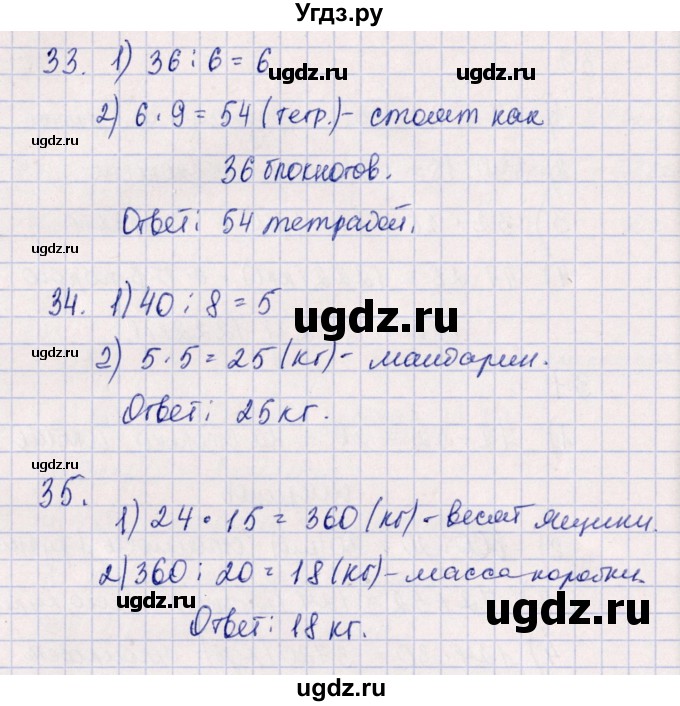 Угдз.ру
33. 1) 36 : 6 = 6
ugdz.ru ugdz.ru
2) 6 · 9 = 54 (тетр.) - стоят как
ugdz.ru
36 блокнотов.
Ответ: 54 тетрадей.
ugdz.ru
34. 1) 40 : 8 = 5
ugdz.ru
ugdz.ru
2) 5 · 5 = 25 (кг) - мандарин.
Ответ: 25 кг.
ugdz.ru
35.
1) 24 · 15 = 360 (кг) - весят ящики.
ugdz.ru
2) 360 : 20 = 18 (кг) - масса коробки.
ugdz.ru
ugdz.ru
Ответ: 18 кг.
ugdz.ru